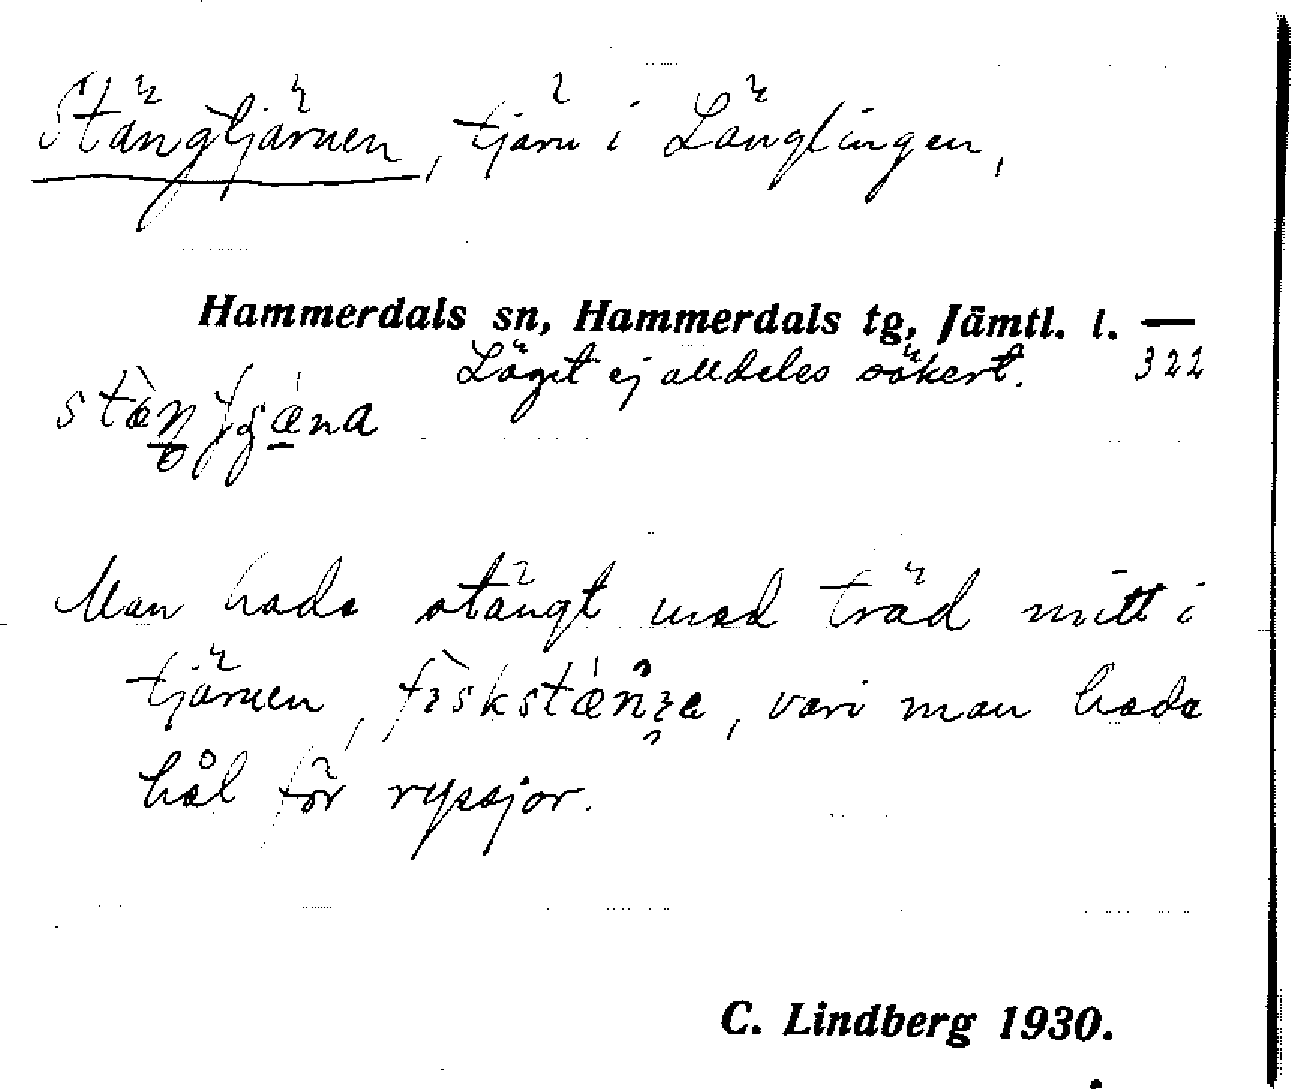 Stängtjärnen, tjärn i Länglingen,
Hammerdals sn, Hammerdals tg, Jämtl. l. —
Läget ej alldeles säkert. 322
Man hade stängt med träd mitt i
tjärnen, vari man hade
hål för ryssjor.
C. Lindberg 1930.